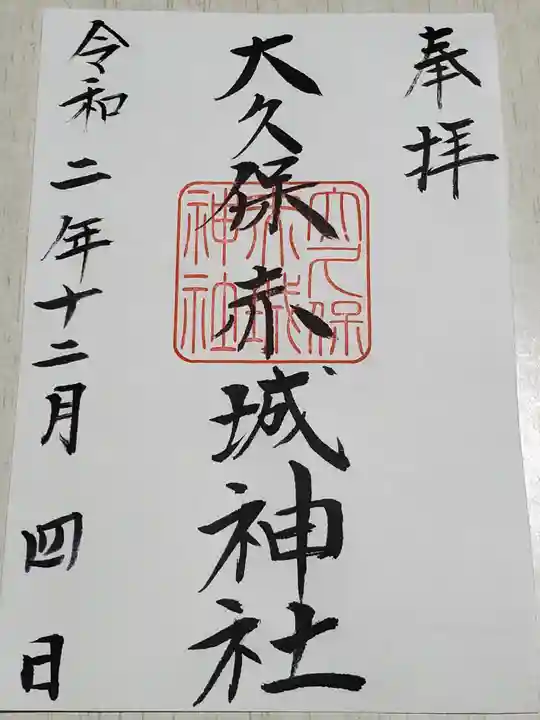 奉拝
大久保赤城神社
大久保赤城神社
令和二年十二月四日